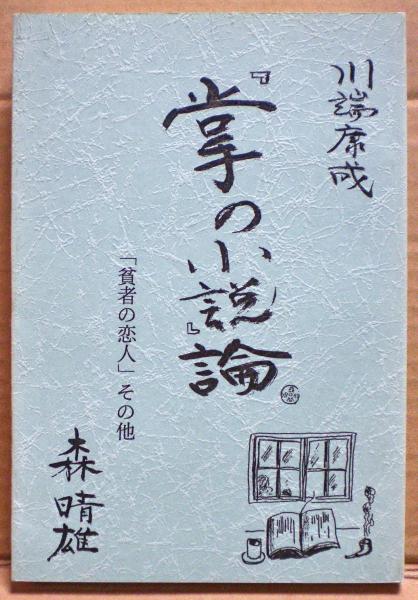 川端康成
『掌の小説』論
「貧者の恋人」その他
森晴雄